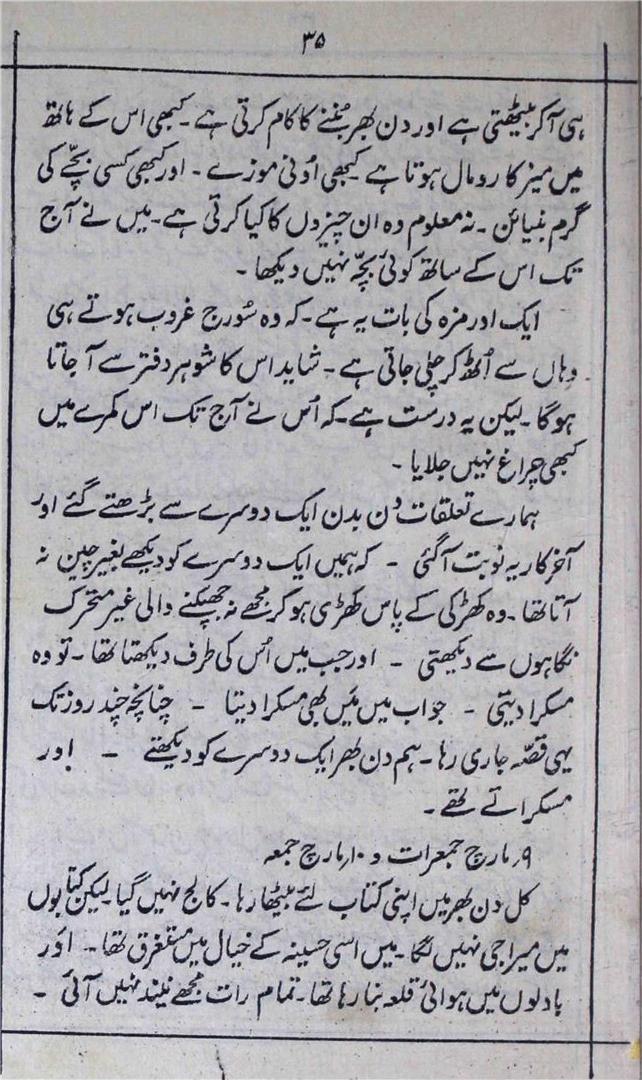 ۳۵
ہی آکر بیٹھتی ہے اور دن بھر بُننے کا کام کرتی ہے ۔ کبھی اس کے ہاتھ
میں میز کا رومال ہوتا ہے کبھی اُونی موزے ۔ اور کبھی کسی بچّے کی
گرم بنیائن ۔ نہ معلوم وہ ان چیزوں کا کیا کرتی ہے ۔ میں نے آج
تک اس کے ساتھ کوئی بچّہ نہیں دیکھا ۔
ایک اور مزہ کی بات یہ ہے ۔ کہ وہ سُورج غروب ہوتے ہی
وہاں سے اُٹھ کر چلی جاتی ہے ۔ شاید اس کا شوہر دفتر سے آ جاتا
ہوگا ۔ لیکن یہ درست ہے ۔ کہ اُس نے آج تک اس کمرے میں
کبھی چراغ نہیں جلایا ۔
ہمارے تعلقات دن بدن ایک دوسرے سے بڑھتے گئے اور
آخرکار یہ نوبت آگئی ۔ کہ ہمیں ایک دوسرے کو دیکھے بغیر چین نہ
آتا تھا ۔ وہ کھڑکی کے پاس کھڑی ہو کر مجھے نہ جھپکنے والی غیر متحرک
نگاہوں سے دیکھتی ۔ اور جب میں اُس کی طرف دیکھتا تھا ۔ تو وہ
مسکرا دیتی ۔ جواب میں مَیں بھی مسکرا دیتا ۔ چنانچہ چند روز تک
یہی قصّہ جاری رہا ۔ ہم دن بھر ایک دوسرے کو دیکھتے ۔ اور
مسکراتے تھے ۔
۹ر مارچ جمعرات و ۱۰ر مارچ جمعہ
کل دن بھر میں اپنی کتاب لئے بیٹھا رہا ۔ کالج نہیں گیا ۔ لیکن کتابوں
میں میرا جی نہیں لگا ۔ میں اسی حسینہ کے خیال میں مستغرق تھا ۔ اور
بادلوں میں ہوائی قلعہ بنا رہا تھا ۔ تمام رات مجھے نیند نہیں آئی ۔